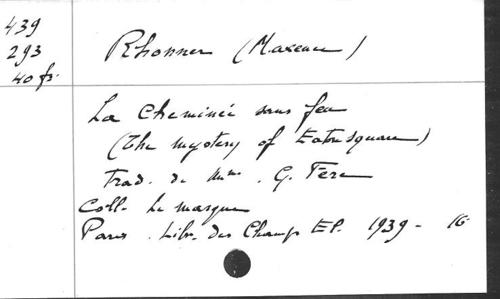 439
293
40 fr.
Rhonner (Maxence)
La Cheminée sans feu
(The mystery of Eatonsquare)
Trad. de Mme. G. Tere
Coll. Le masque
Paris. Libr. des Champs El. 1939 - 16